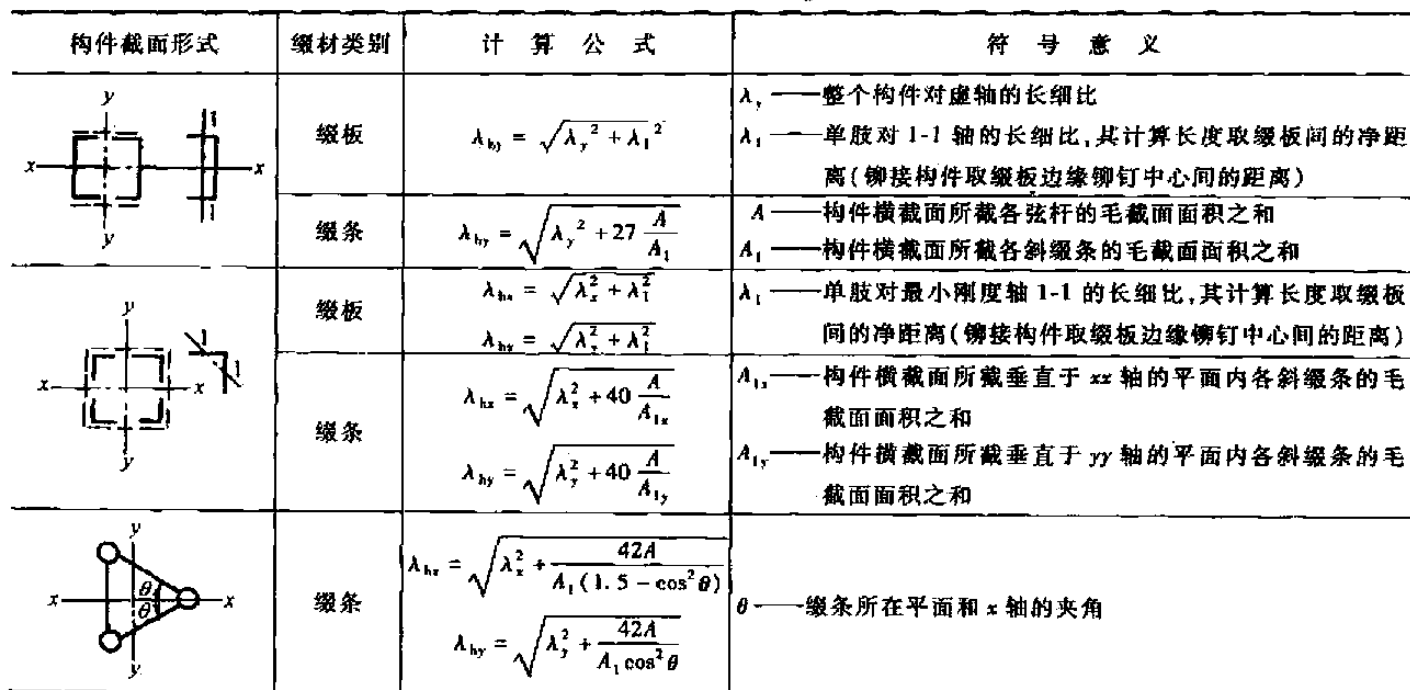 构件截面形式 缀材类别 计算公式 符号意义
y
1
x x
1
y
缀板
λhy = √(λy² + λ1²)
λy——整个构件对虚轴的长细比
λ1——单肢对 1-1 轴的长细比,其计算长度取缀板间的净距
离(铆接构件取缀板边缘铆钉中心间的距离)
缀条
λhy = √(λy² + 27 A/A1)
A——构件横截面所截各弦杆的毛截面面积之和
A1——构件横截面所截各斜缀条的毛截面面积之和
y
1
1
x x
y
缀板
λhx = √(λx² + λ1²)
λhx = √(λy² + λ1²)
λ1——单肢对最小刚度轴 1-1 的长细比,其计算长度取缀板
间的净距离(铆接构件取缀板边缘铆钉中心间的距离)
缀条
λhx = √(λx² + 40 A/A1x)
λhy = √(λy² + 40 A/A1y)
A1x——构件横截面所截垂直于 xx 轴的平面内各斜缀条的毛
截面面积之和
A1y——构件横截面所截垂直于 yy 轴的平面内各斜缀条的毛
截面面积之和
y
θ
x x
θ
y
缀条
λhx = √(λx² + 42A/(A1(1.5 - cos²θ)))
λhy = √(λy² + 42A/(A1cos²θ))
θ——缀条所在平面和 x 轴的夹角